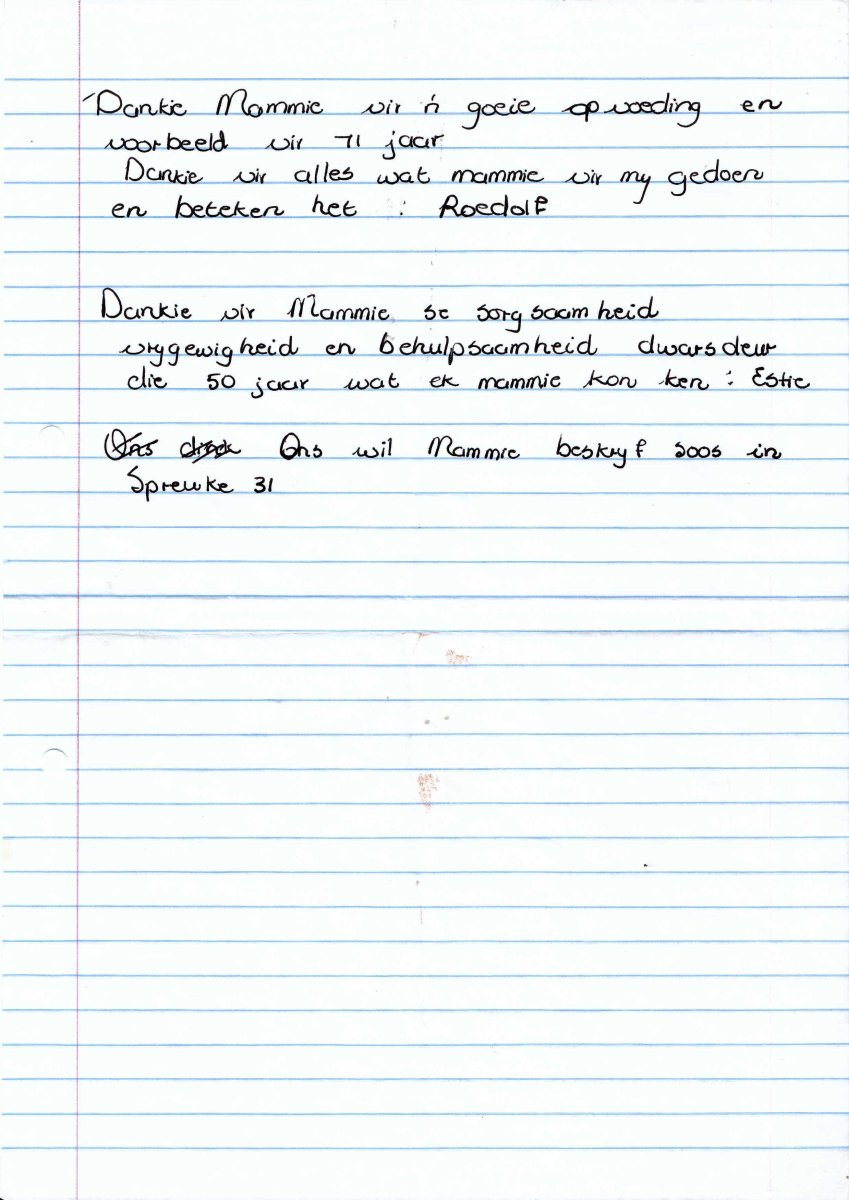 Dankie Mammie vir 'n goeie opvoeding en
voorbeeld vir 71 jaar
Dankie vir alles wat mammie vir my gedoen
en beteken het : Roedolf
Dankie vir Mammie se sorgsaamheid
vrygewigheid en behulpsaamheid dwarsdeur
die 50 jaar wat ek mammie kon ken : Estie
Ons wil Mammie beskryf soos in
Spreuke 31